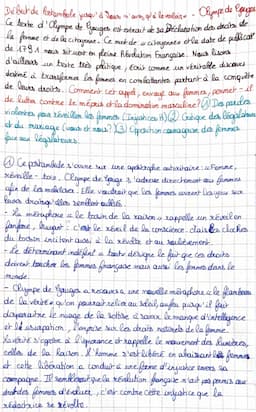 Début de Postambule jusqu'à "dans son, qu'à le vouloir" - Olympe de Gouges
Ce texte d'Olympe de Gouges est extrait de sa Déclaration des droits de
la femme et de la citoyenne. Ce mot de citoyenne et la date de publicat°
de 1791 nous situent en pleine Révolution Française. Nous lisons
d'ailleurs un texte très politique, écrit comme un véritable discours
destiné à transformer les femmes en combattantes partant à la conquête
de leurs droits. Comment cet appel, envoyé aux femmes, permet-il
de lutter contre le mépris et la domination masculine? ① Des paroles
violentes pour réveiller les femmes ② Critique des législateurs
et du mariage ③ Opération courageuse des femmes
face aux législateurs.
① Ce postambule s'ouvre sur une apostrophe autoritaire: "Femme,
réveille-toi". Olympe de Gouge s'adresse directement aux femmes
afin de les mobiliser. Elle voudrait que les femmes ouvrent les yeux sur
leurs droits
- La métaphore "le tocsin de la raison" rappelle un réveil en
fanfare, bruyant: c'est le réveil de la conscience. Les cloches
du tocsin incitent aussi à la révolte et au soulèvement.
- Le déterminant indéfini "tout" désigne le fait que ces droits
doivent toucher les femmes françaises mais aussi les femmes dans le
monde.
- Olympe de Gouges a recours à une nouvelle métaphore "le flambeau
de la vérité" qu'on pourrait relier au soleil puisqu'il fait
disparaître le nuage de la sottise à savoir le manque d'intelligence
et l'usurpation, l'emprise sur les droits naturels de la femme.
La vérité s'oppose à l'ignorance et rappelle le mouvement des lumières,
celles de la raison. L'homme s'est libéré en abaissant les femmes
et cette libération a conduit à une forme d'injustice envers sa
compagne. Il semblerait que la révolution française n'ait pas permis aux
femmes d'évoluer, c'est contre cette injustice que la
rédactrice se révolte.